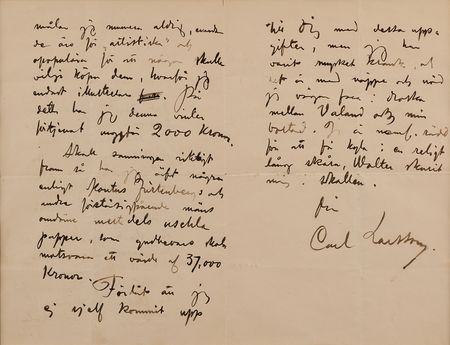 målar jag numera aldrig, emedan
de äro för "artistiska" och
opopulära för att någon skulle
vilja köpa dem, hvarför jag
endast illustrerar. På
detta har jag denna vinter
förtjenat 2000 Kronor.
Skall sanningen riktigt
fram så har jag några
enligt Pontus Fürstenbergs och
andra mäns
omdöme mest dels uschla
papper, som skola
motsvara ett värde af 37,000
Kronor.
Förlåt att jag
ej sjelf kommit upp
till Dig med dessa upp-
gifter, men jag har
varit mycket klent, och
det är med nöppe och nöd
jag vågar fara i droska
mellan Valand och min
bostad. Jag är rädd
för att få kyla i en religt
lång skåra, Walter skurit
mig i skallen.
Din
Carl Larsson.